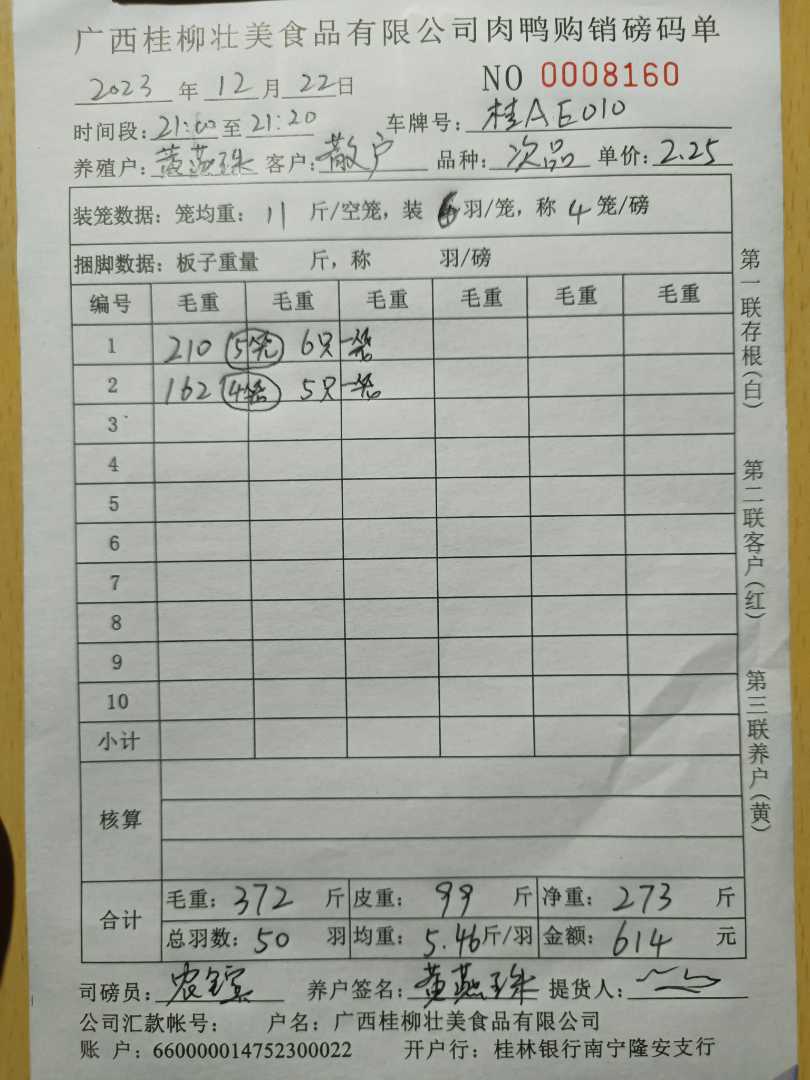 广西桂柳壮美食品有限公司肉鸭购销磅码单
2023 年 12 月 22 日 NO 0008160
时间段: 21:00 至 21:20 车牌号: 桂AE010
养殖户: 黄燕珠 客户: 散户 品种: 次品 单价: 2.25
装笼数据: 笼均重: 11 斤/空笼, 装 羽/笼, 称 4 笼/磅
捆脚数据: 板子重量 斤, 称 羽/磅
编号 毛重 毛重 毛重 毛重 毛重 毛重
1 210 5笼 6只一笼
2 162 4笼 5只一笼
3
4
5
6
7
8
9
10
小计
核算
合计
毛重: 372 斤 皮重: 99 斤 净重: 273 斤
总羽数: 50 羽 均重: 5.46 斤/羽 金额: 614 元
司磅员: 养户签名: 黄燕珠 提货人:
公司汇款帐号: 户名: 广西桂柳壮美食品有限公司
账 户: 660000014752300022 开户行: 桂林银行南宁隆安支行
第一联存根(白)
第二联客户(红)
第三联养户(黄)